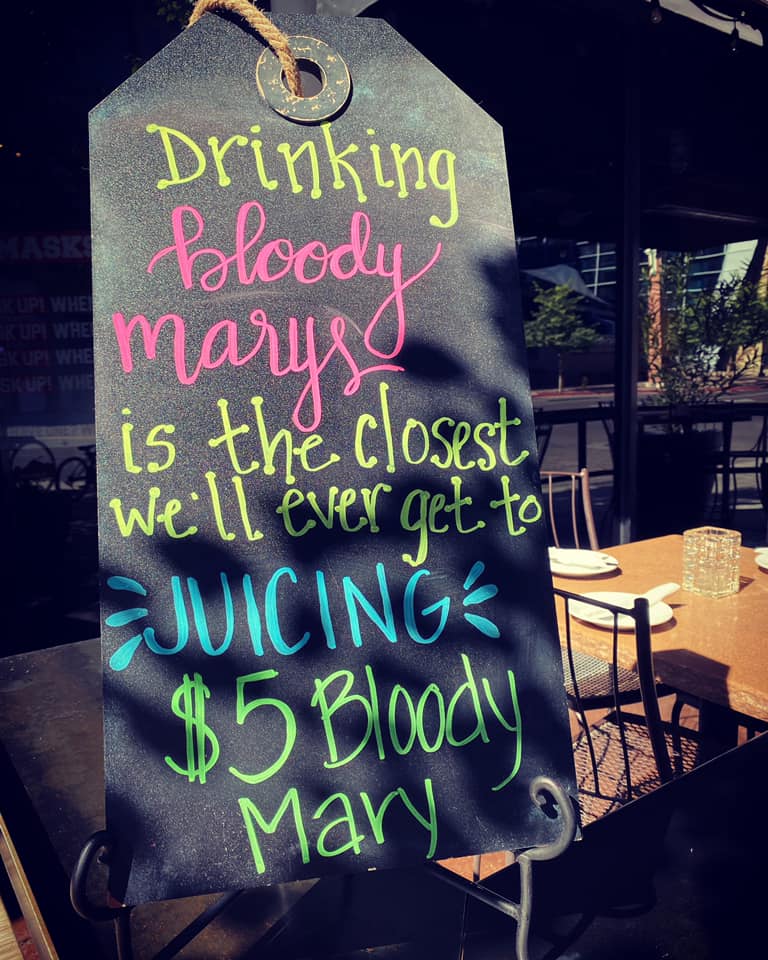 Drinking
bloody
marys
is the closest
we'll ever get to
JUICING
$5 Bloody
Mary
MASKS
K UP! WHE
K UP! WHE
SK UP! WHE
SK UP! WHE